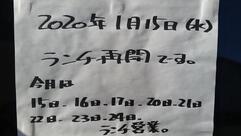 2020年1月15日(水)
ランチ再開です。
今月は
15日、16日、17日、20日、21日
22日、23日、24日、
ランチ営業。